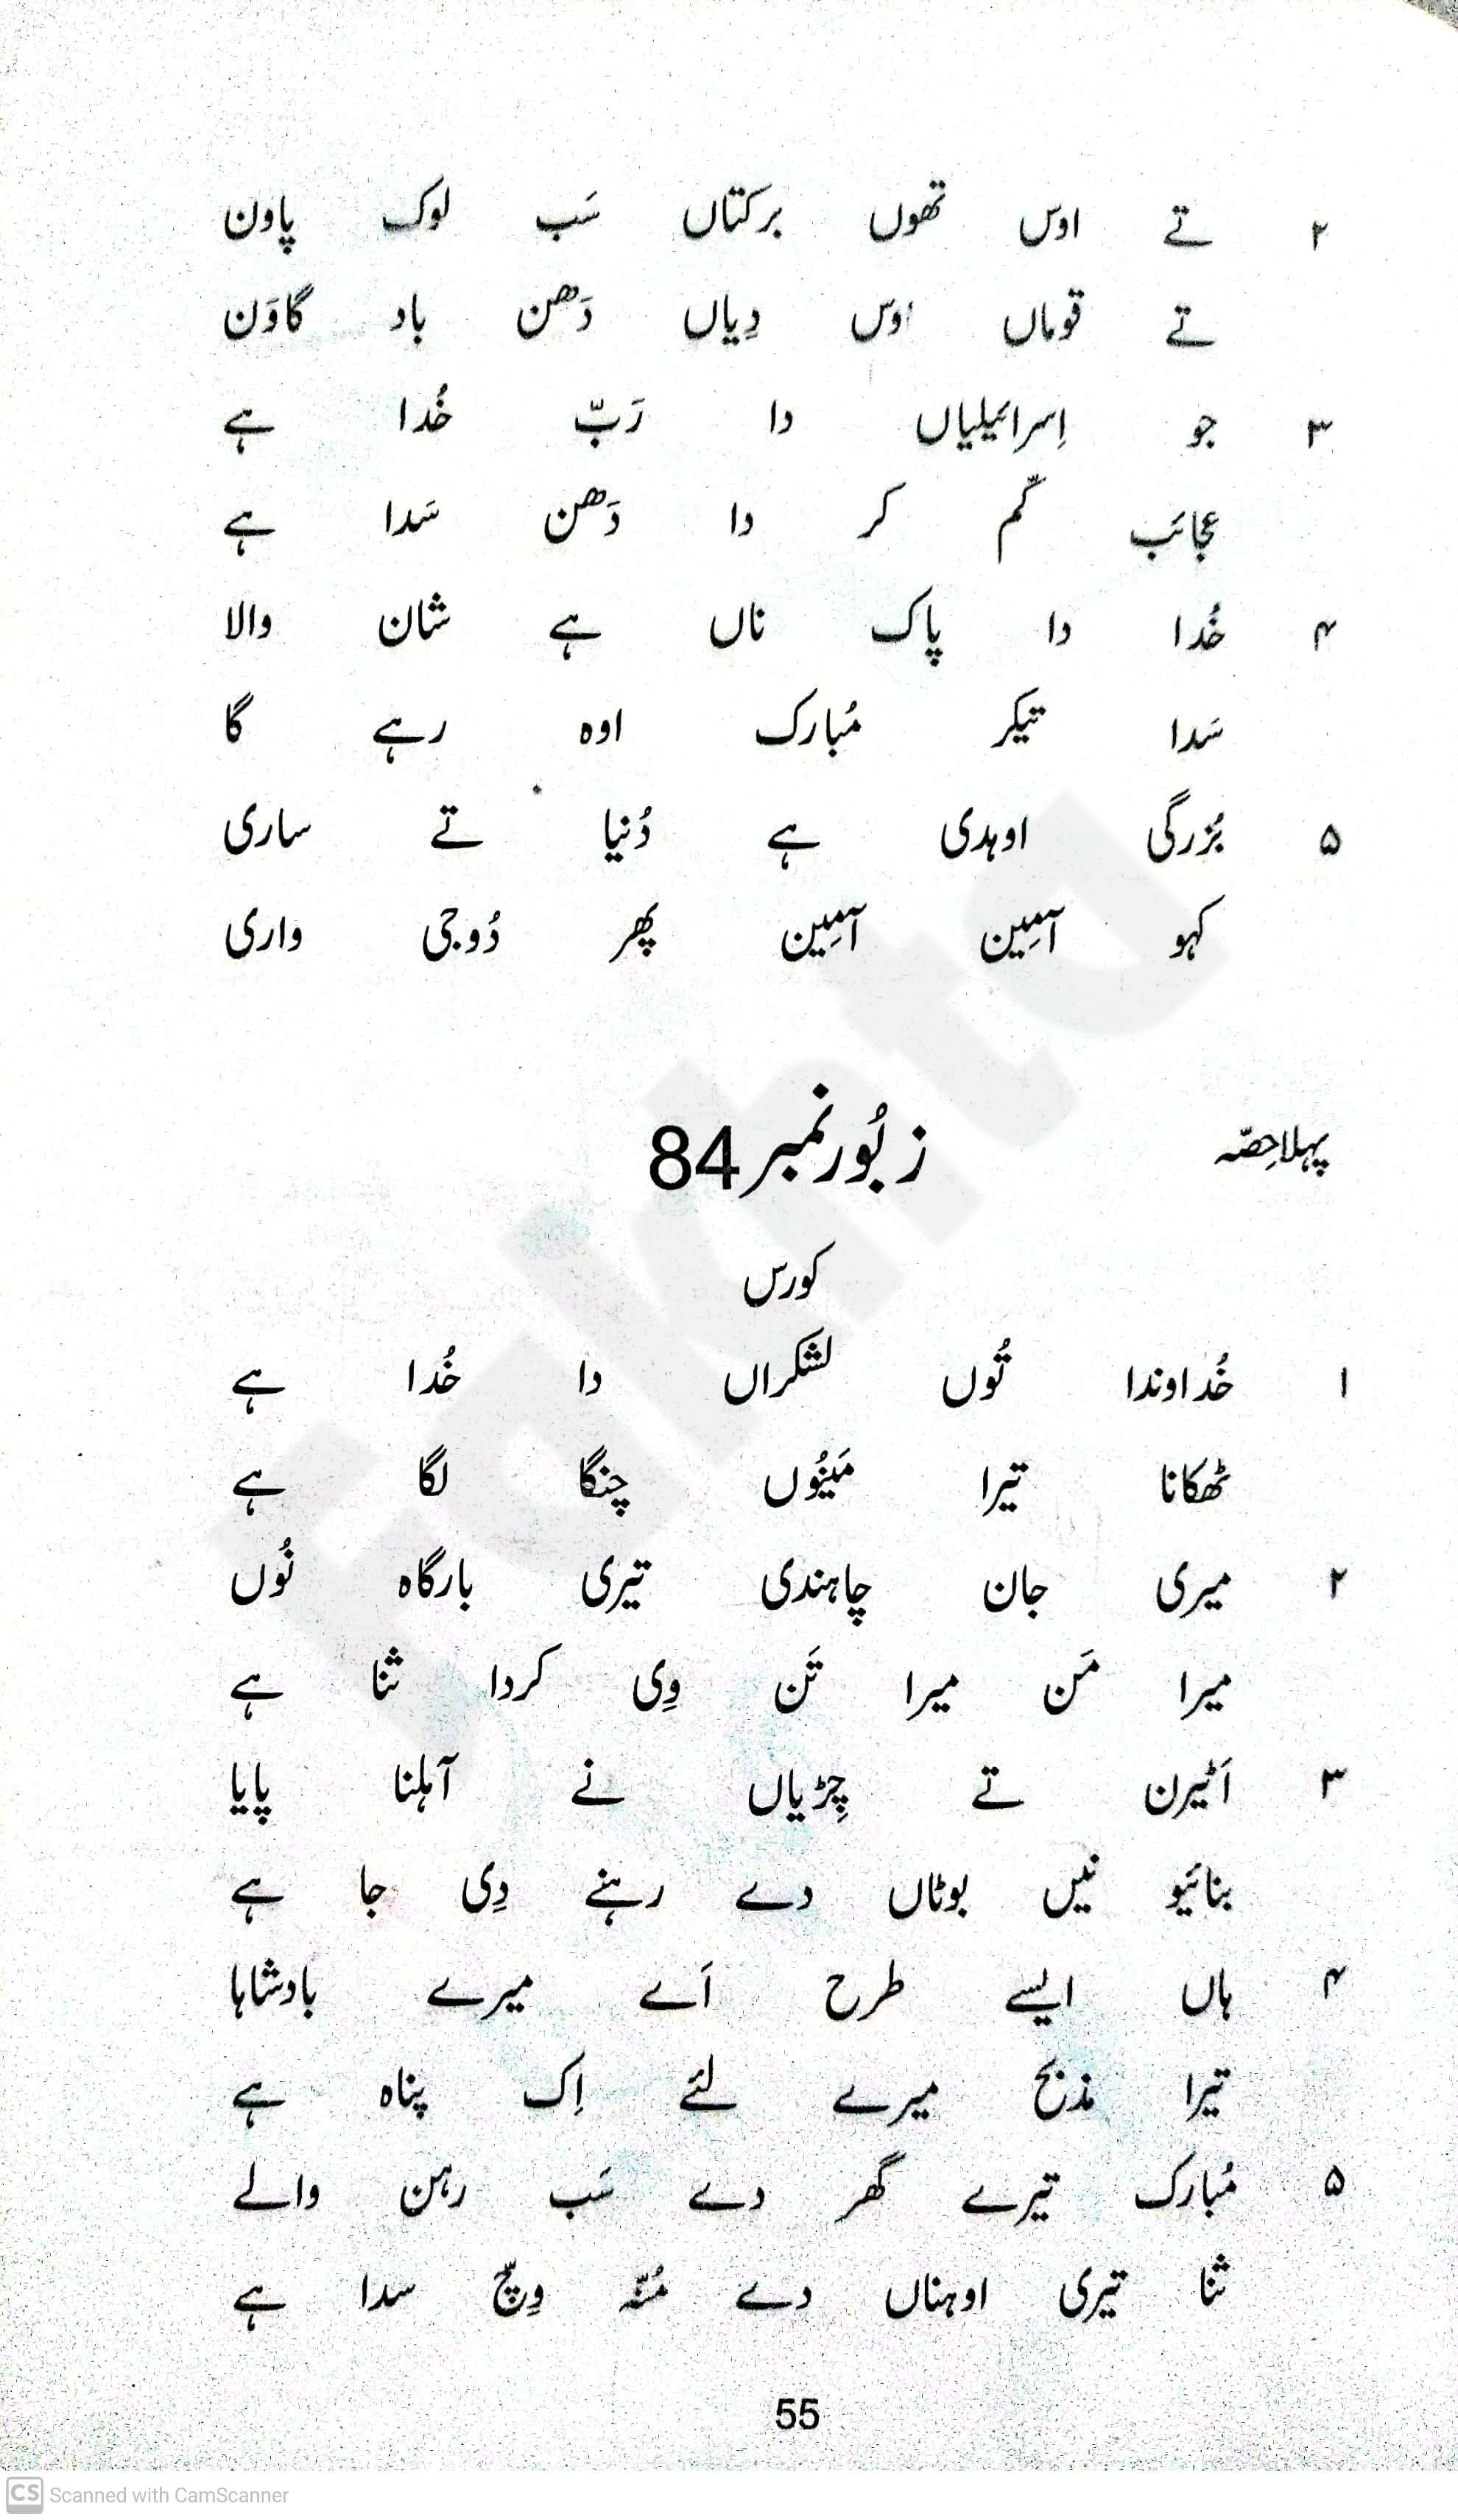 ۲ تے اوس تھوں برکتاں سَب لوک پاون
تے قوماں اوس دِیاں دَھن باد گاوَن
۳ جو اِسرائیلیاں دا رَبّ خُدا ہے
عجائب کَم کر دا دَھن سَدا ہے
۴ خُدا دا پاک ناں ہے شان والا
سَدا تیکر مُبارک اوہ رہے گا
۵ بُزرگی اوہدی ہے دُنیا تے ساری
کہو آمِین آمِین پھر دُوجی واری
پہلا حِصّہ
زبُور نمبر 84
کورس
۱ خُداوندا تُوں لشکراں دا خُدا ہے
ٹھکانا تیرا مَینُوں چنگا لگا ہے
۲ میری جان چاہندی تیری بارگاہ نُوں
میرا مَن میرا تَن وِی کردا ثنا ہے
۳ اَٹیرن تے چِڑیاں نے آہلنا پایا
بنائیو نیں بوٹاں دے رہنے دِی جا ہے
۴ ہاں ایسے طرح اَے میرے بادشاہا
تیرا مذبح میرے لئے اِک پناہ ہے
۵ مُبارک تیرے گھر دے سَب رہن والے
ثنا تیری اوہناں دے مُنّہ وِچّ سدا ہے
55
Fakhta
CS Scanned with CamScanner